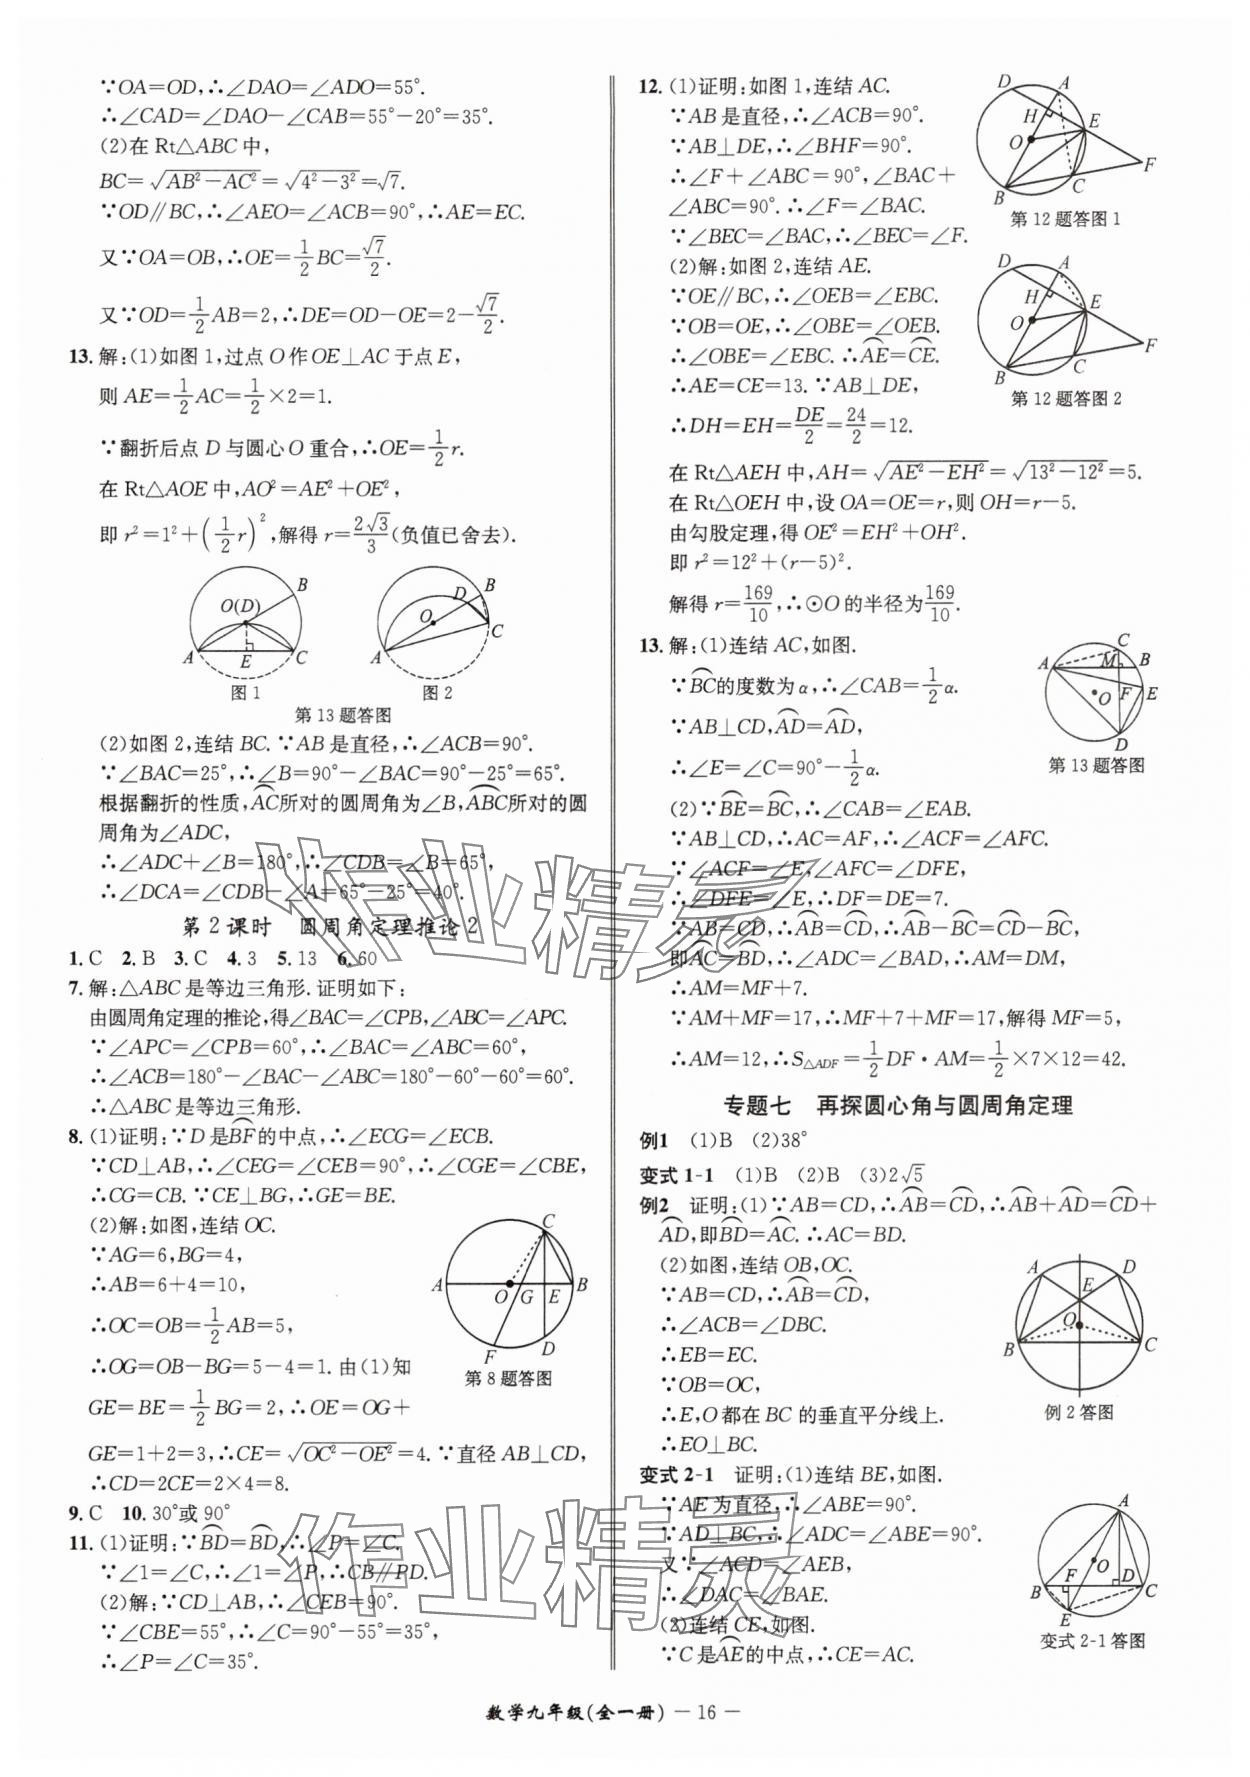 ∵OA=OD,∴∠DAO=∠ADO=55°.
∴∠CAD=∠DAO-∠CAB=55°-20°=35°.
(2)在 Rt△ABC 中,
BC=√(AB²-AC²)=√(4²-3²)=√7.
∵OD∥BC,∴∠AEO=∠ACB=90°,∴AE=EC.
又∵OA=OB,∴OE=1/2 BC=√7/2.
又∵OD=1/2 AB=2,∴DE=OD-OE=2-√7/2.
13. 解:(1)如图 1,过点 O 作 OE⊥AC 于点 E,
则 AE=1/2 AC=1/2×2=1.
∵翻折后点 D 与圆心 O 重合,∴OE=1/2 r.
在 Rt△AOE 中,AO²=AE²+OE²,
即 r²=1²+(1/2 r)²,解得 r=2√3/3(负值已舍去).
B
O(D)
A E C
图 1
D B
O
C
A
图 2
第 13 题答图
(2)如图 2,连结 BC.∵AB 是直径,∴∠ACB=90°.
∵∠BAC=25°,∴∠B=90°-∠BAC=90°-25°=65°.
根据翻折的性质,⌒AC所对的圆周角为∠B,⌒ABC所对的圆
周角为∠ADC,
∴∠ADC+∠B=180°,∴∠CDB=∠B=65°,
∴∠DCA=∠CDB-∠A=65°-25°=40°.
第 2 课时 圆周角定理推论 2
1. C 2. B 3. C 4. 3 5. 13 6. 60
7. 解:△ABC 是等边三角形.证明如下:
由圆周角定理的推论,得∠BAC=∠CPB,∠ABC=∠APC.
∵∠APC=∠CPB=60°,∴∠BAC=∠ABC=60°,
∴∠ACB=180°-∠BAC-∠ABC=180°-60°-60°=60°.
∴△ABC 是等边三角形.
8. (1)证明:∵D 是⌒BF的中点,∴∠ECG=∠ECB.
∵CD⊥AB,∴∠CEG=∠CEB=90°,∴∠CGE=∠CBE,
∴CG=CB.∵CE⊥BG,∴GE=BE.
(2)解:如图,连结 OC.
∵AG=6,BG=4,
∴AB=6+4=10,
∴OC=OB=1/2 AB=5,
∴OG=OB-BG=5-4=1.由(1)知
GE=BE=1/2 BG=2,∴OE=OG+
GE=1+2=3,∴CE=√(OC²-OE²)=4.∵直径 AB⊥CD,
∴CD=2CE=2×4=8.
C
A O G E B
F D
第 8 题答图
9. C 10. 30°或 90°
11. (1)证明:∵⌒BD=⌒BD,∴∠P=∠C.
∵∠1=∠C,∴∠1=∠P,∴CB∥PD.
(2)解:∵CD⊥AB,∴∠CEB=90°.
∵∠CBE=55°,∴∠C=90°-55°=35°,
∴∠P=∠C=35°.
12. (1)证明:如图 1,连结 AC.
∵AB 是直径,∴∠ACB=90°.
∵AB⊥DE,∴∠BHF=90°.
∴∠F+∠ABC=90°,∠BAC+
∠ABC=90°.∴∠F=∠BAC.
∵∠BEC=∠BAC,∴∠BEC=∠F.
D A
H E
O
F
B C
第 12 题答图 1
(2)解:如图 2,连结 AE.
∵OE∥BC,∴∠OEB=∠EBC.
∵OB=OE,∴∠OBE=∠OEB.
∴∠OBE=∠EBC.∴⌒AE=⌒CE.
∴AE=CE=13.∵AB⊥DE,
∴DH=EH=DE/2=24/2=12.
D A
H E
O
F
B C
第 12 题答图 2
在 Rt△AEH 中,AH=√(AE²-EH²)=√(13²-12²)=5.
在 Rt△OEH 中,设 OA=OE=r,则 OH=r-5.
由勾股定理,得 OE²=EH²+OH².
即 r²=12²+(r-5)².
解得 r=169/10,∴⊙O 的半径为169/10.
13. 解:(1)连结 AC,如图.
∵⌒BC的度数为 α,∴∠CAB=1/2 α.
∵AB⊥CD,⌒AD=⌒AD,
∴∠E=∠C=90°-1/2 α.
C
A M B
F E
O
D
第 13 题答图
(2)∵⌒BE=⌒BC,∴∠CAB=∠EAB.
∵AB⊥CD,∴AC=AF,∴∠ACF=∠AFC.
∵∠ACF=∠E,∠AFC=∠DFE,
∴∠DFE=∠E,∴DF=DE=7.
∵⌒AB=⌒CD,∴⌒AB=⌒CD,∴⌒AB-⌒BC=⌒CD-⌒BC,
即⌒AC=⌒BD,∴∠ADC=∠BAD,∴AM=DM,
∴AM=MF+7.
∵AM+MF=17,∴MF+7+MF=17,解得 MF=5,
∴AM=12,∴S△ADF=1/2 DF·AM=1/2×7×12=42.
专题七 再探圆心角与圆周角定理
例1 (1)B (2)38°
变式 1-1 (1)B (2)B (3)2√5
例2 证明:(1)∵AB=CD,∴⌒AB=⌒CD,∴⌒AB+⌒AD=⌒CD+
⌒AD,即⌒BD=⌒AC.∴AC=BD.
(2)如图,连结 OB,OC.
∵AB=CD,∴⌒AB=⌒CD,
∴∠ACB=∠DBC.
∴EB=EC.
∵OB=OC,
∴E,O 都在 BC 的垂直平分线上.
∴EO⊥BC.
A D
E
O
B C
例 2 答图
变式 2-1 证明:(1)连结 BE,如图.
∵AE 为直径,∴∠ABE=90°.
∵AD⊥BC,∴∠ADC=∠ABE=90°.
又∵∠ACD=∠AEB,
∴∠DAC=∠BAE.
(2)连结 CE,如图.
∵C 是⌒AE的中点,∴CE=AC.
A
O
F D
B C
E
变式 2-1 答图
数学九年级(全一册) — 16 —
作业精灵
作业精灵